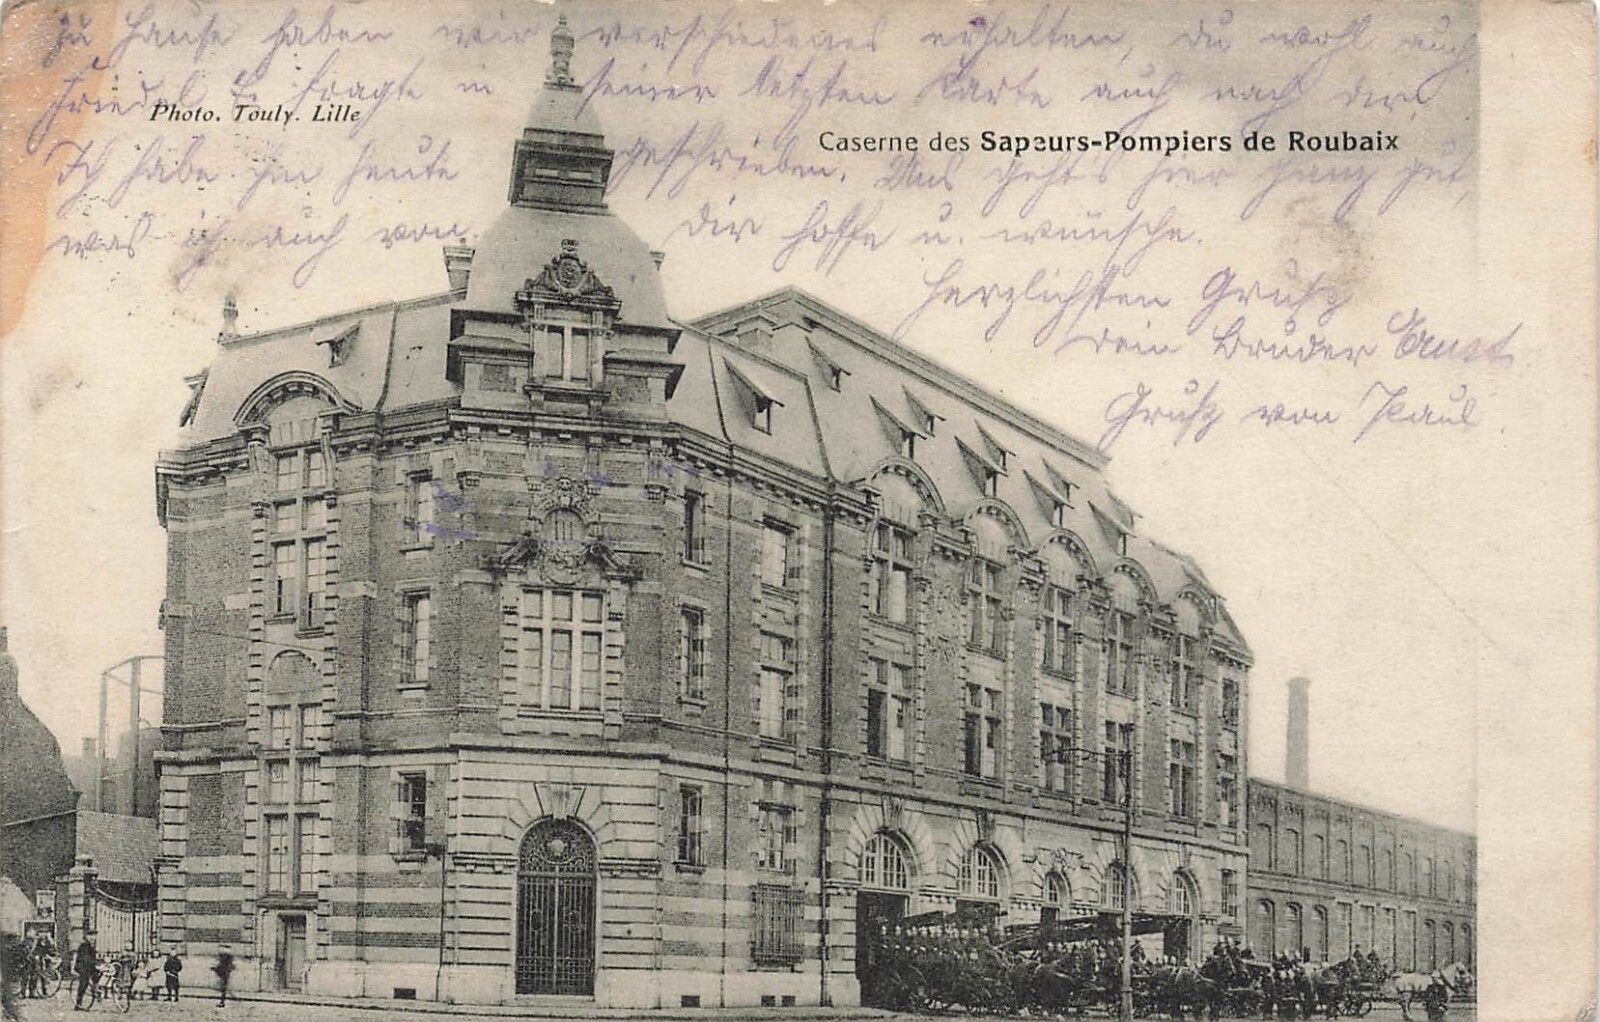 zu Hause haben wir verschiedenes erhalten, du wohl auch
Friedel E. fragte in seiner letzten Karte auch nach dir,
Photo. Touly. Lille
Caserne des Sapeurs-Pompiers de Roubaix
Ich habe ihn heute geschrieben. Uns geht's hier ganz gut,
was ich auch von dir hoffe u. wünsche.
Herzlichsten Gruß
dein Bruder Ernst
Gruß von Paul.